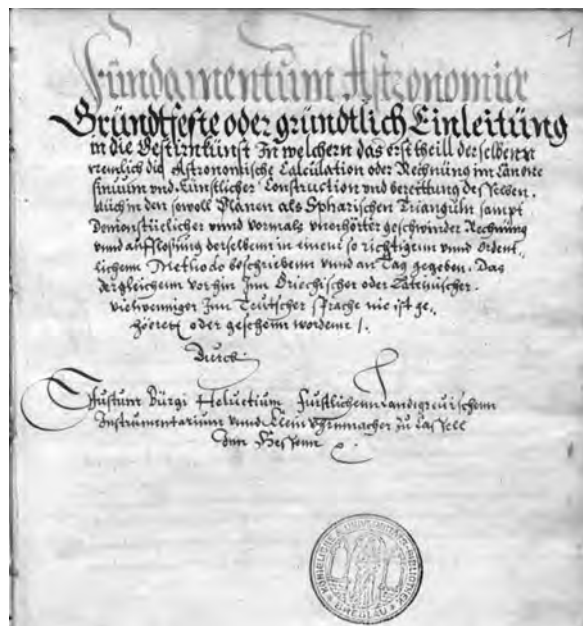 1
Fundamentum Astronomiæ
Gründtfeste oder gründtlich Einleitüng
in die Gestirnkunst In welchern das erst theill derselbenn
nemlich die Astronomische Calculation oder Rechnüng im Canone
sinuum vnd Künstlicher Construction vnd bereittung desselben.
Auch in den sowoll Planen als Spharischen Trianguln sampt
Demonstüelicher vnnd vormals vnerhörter geschwinder Rechnung
vnnd aufflosung derselbenn in einem so richtigem vnnd Ordent,,
lichenn Methodo beschriebenn vnnd an Tag gegeben. Das
dergleichenn vorhin Inn Griechischer oder Lateinischer.
vielwenniger Inn Teutscher sprache nie ist ge,,
höerett oder gesehenn wordenn /.
Durch
Justum Bürgi Heluetium furstlichenn Landtgreuischenn
Instrumentarium vnnd Klein vhrnmacher zu Cassell
Inn Hessenn
KÖNIGLICHE U. UNIVERSITÆTS-BIBLIOTHEK BRESLAU